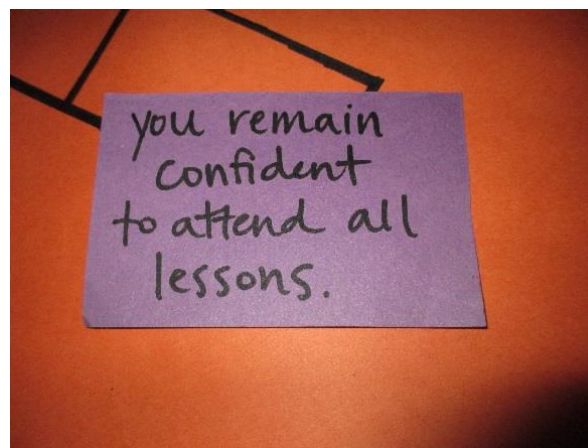 you remain
confident
to attend all
lessons.